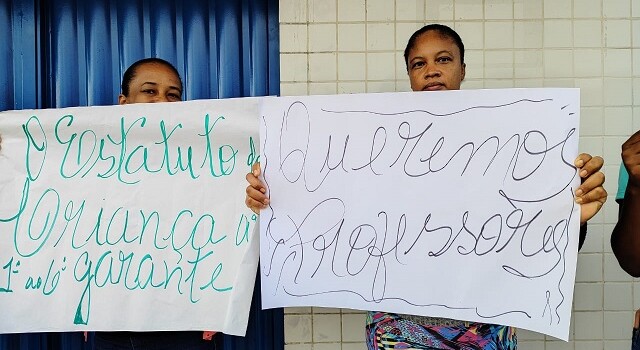 O Estatuto da
Criança
1º ao 6º garante
Queremos
Professores